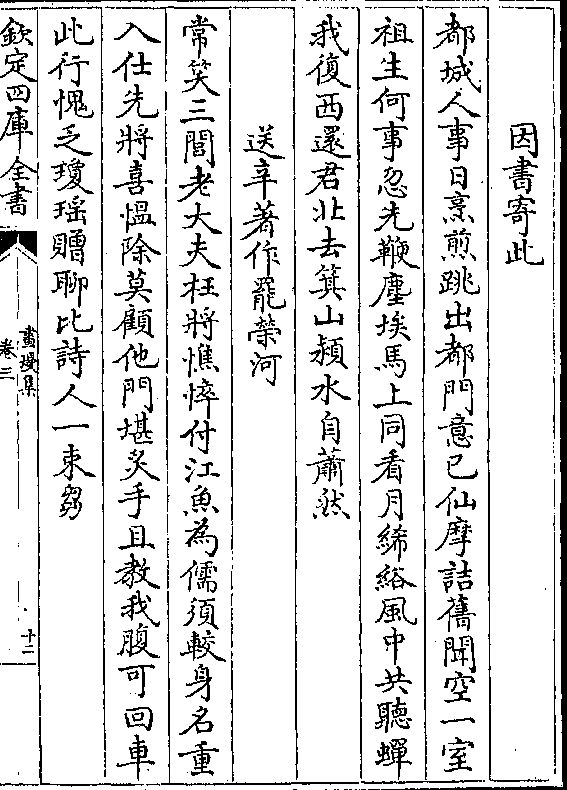 因書寄此
都城人事日烹煎跳出都門意已仙摩詰舊聞空一室
祖生何事忽先鞭塵埃馬上同看月絺綌風中共聽蟬
我復西還君北去箕山潁水自蕭然
送辛著作罷榮河
常笑三閭老大夫枉將憔悴付江魚為儒須較身名重
入仕先將喜愠除莫顧他門堪炙手且教我腹可回車
此行愧乏瓊瑶贈聊比詩人一束芻
欽定四庫全書
畫墁集
卷三
十二